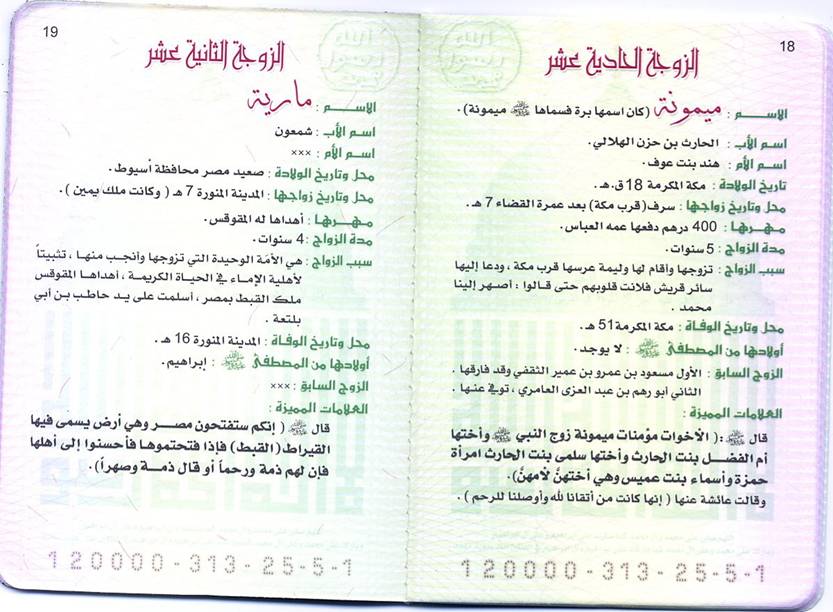 18
الزوجة الحادية عشر
الاســـم : ميمونة (كان اسمها برة فسماها ﷺ ميمونة) .
اسم الأب : الحارث بن حزن الهلالي .
اسم الأم : هند بنت عوف .
تاريخ الولادة : مكة المكرمة 18 ق.هـ .
محل وتاريخ زواجها : سرف(قرب مكة) بعد عمرة القضاء 7 هـ .
مـهـرهـا : 400 درهم دفعها عمه العباس .
مدة الزواج : 5 سنوات .
سبب الزواج : تزوجها وأقام لها وليمة عرسها قرب مكة ، ودعا إليها
سائر قريش فلانت قلوبهم حتى قالوا : أصهر إلينا
محمد .
محل وتاريخ الوفاة : مكة المكرمة 51 هـ .
أولادها من المصطفى ﷺ : لا يوجد .
الزوج السابق : الأول مسعود بن عمرو بن عمير الثقفي وقد فارقها .
الثاني أبو رهم بن عبد العزى العامري ، توفي عنها .
العلامات المميزة :
قال ﷺ : ( الأخوات مؤمنات ميمونة زوج النبي ﷺ وأختها
أم الفضل بنت الحارث وأختها سلمى بنت الحارث امرأة
حمزة وأسماء بنت عميس وهي أختهنّ لأمهنّ).
وقالت عائشة عنها ( إنها كانت من أتقانا لله وأوصلنا للرحم ) .
120000-313-25-5-1
19
الزوجة الثانية عشر
الاســـم : مارية
اسم الأب : شمعون
اسم الأم : ×××
محل وتاريخ الولادة : صعيد مصر محافظة أسيوط .
محل وتاريخ زواجها : المدينة المنورة 7 هـ ( وكانت ملك يمين ) .
مـهـرهـا : أهداها له المقوقس .
مدة الزواج : 4 سنوات .
سبب الزواج : هي الأمَة الوحيدة التي تزوجها وأنجب منها ، تثبيتاً
لأهلية الإماء في الحياة الكريمة ، أهداها المقوقس
ملك القبط بمصر ، أسلمت على يد حاطب بن أبي
بلتعة .
محل وتاريخ الوفاة : المدينة المنورة 16 هـ .
أولادها من المصطفى ﷺ : إبراهيم .
الزوج السابق : ×××
العلامات المميزة :
قال ﷺ ( إنكم ستفتحون مصر وهي أرض يسمى فيها
القيراط (القبط) فإذا فتحتموها فأحسنوا إلى أهلها
فإن لهم ذمة ورحماً أو قال ذمة وصهراً).
120000-313-25-5-1